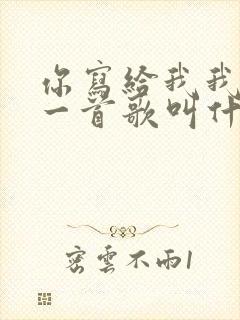 你寫給我我
一首歌叫什
密雲不雨1